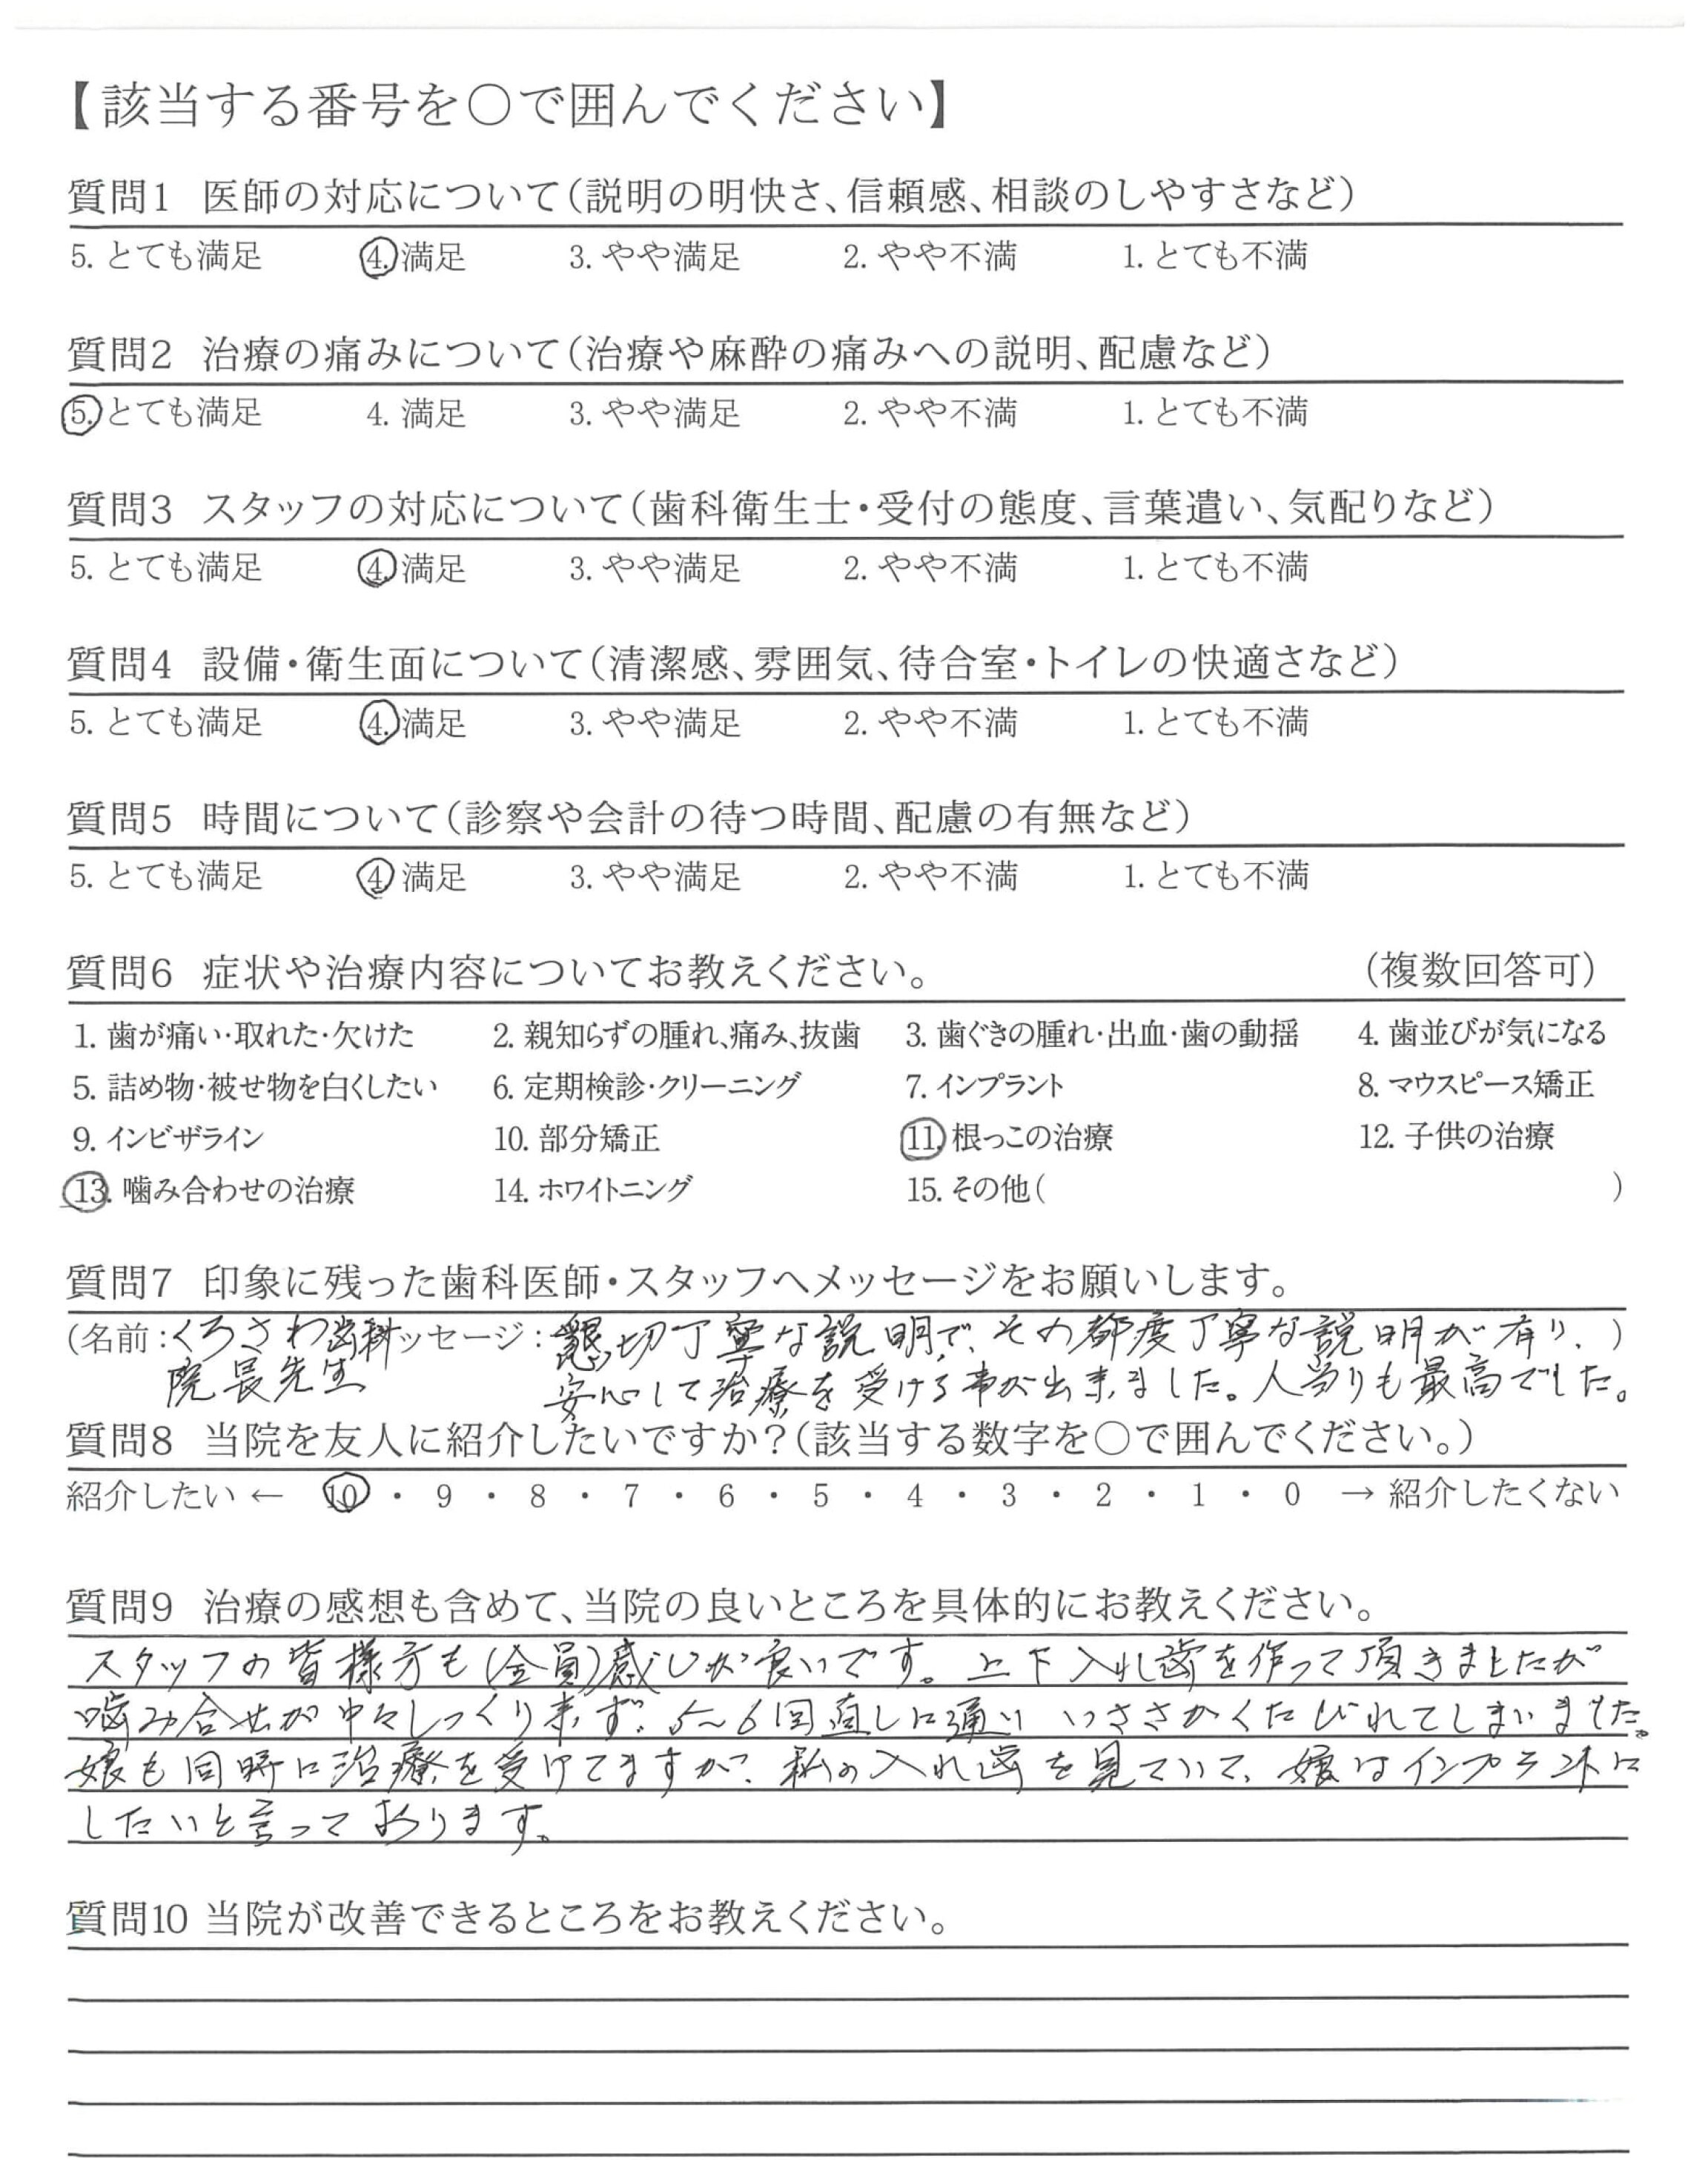 【該当する番号を○で囲んでください】
質問1 医師の対応について(説明の明快さ、信頼感、相談のしやすさなど)
5. とても満足 4. 満足 3. やや満足 2. やや不満 1. とても不満
質問2 治療の痛みについて(治療や麻酔の痛みへの説明、配慮など)
5. とても満足 4. 満足 3. やや満足 2. やや不満 1. とても不満
質問3 スタッフの対応について(歯科衛生士・受付の態度、言葉遣い、気配りなど)
5. とても満足 4. 満足 3. やや満足 2. やや不満 1. とても不満
質問4 設備・衛生面について(清潔感、雰囲気、待合室・トイレの快適さなど)
5. とても満足 4. 満足 3. やや満足 2. やや不満 1. とても不満
質問5 時間について(診察や会計の待つ時間、配慮の有無など)
5. とても満足 4. 満足 3. やや満足 2. やや不満 1. とても不満
質問6 症状や治療内容についてお教えください。 (複数回答可)
1. 歯が痛い・取れた・欠けた 2. 親知らずの腫れ、痛み、抜歯 3. 歯ぐきの腫れ・出血・歯の動揺 4. 歯並びが気になる
5. 詰め物・被せ物を白くしたい 6. 定期検診・クリーニング 7. インプラント 8. マウスピース矯正
9. インビザライン 10. 部分矯正 11. 根っこの治療 12. 子供の治療
13. 噛み合わせの治療 14. ホワイトニング 15. その他( )
質問7 印象に残った歯科医師・スタッフへメッセージをお願いします。
(名前:くろさわ歯科ッセージ:懇切丁寧な説明で、その都度丁寧な説明が有り、)
院長先生 安心して治療を受ける事が出来ました。人当りも最高でした。
質問8 当院を友人に紹介したいですか?(該当する数字を○で囲んでください。)
紹介したい ← 10 ・ 9 ・ 8 ・ 7 ・ 6 ・ 5 ・ 4 ・ 3 ・ 2 ・ 1 ・ 0 → 紹介したくない
質問9 治療の感想も含めて、当院の良いところを具体的にお教えください。
スタッフの皆様方も(全員)感じが良いです。上下入れ歯を作って頂きましたが
噛み合せが中々しっくり来ず、5～6回直しに通い いささかくたびれてしまいました。
娘も同時に治療を受けてますが、私の入れ歯を見ていて、娘はインプラントに
したいと言っております。
質問10 当院が改善できるところをお教えください。